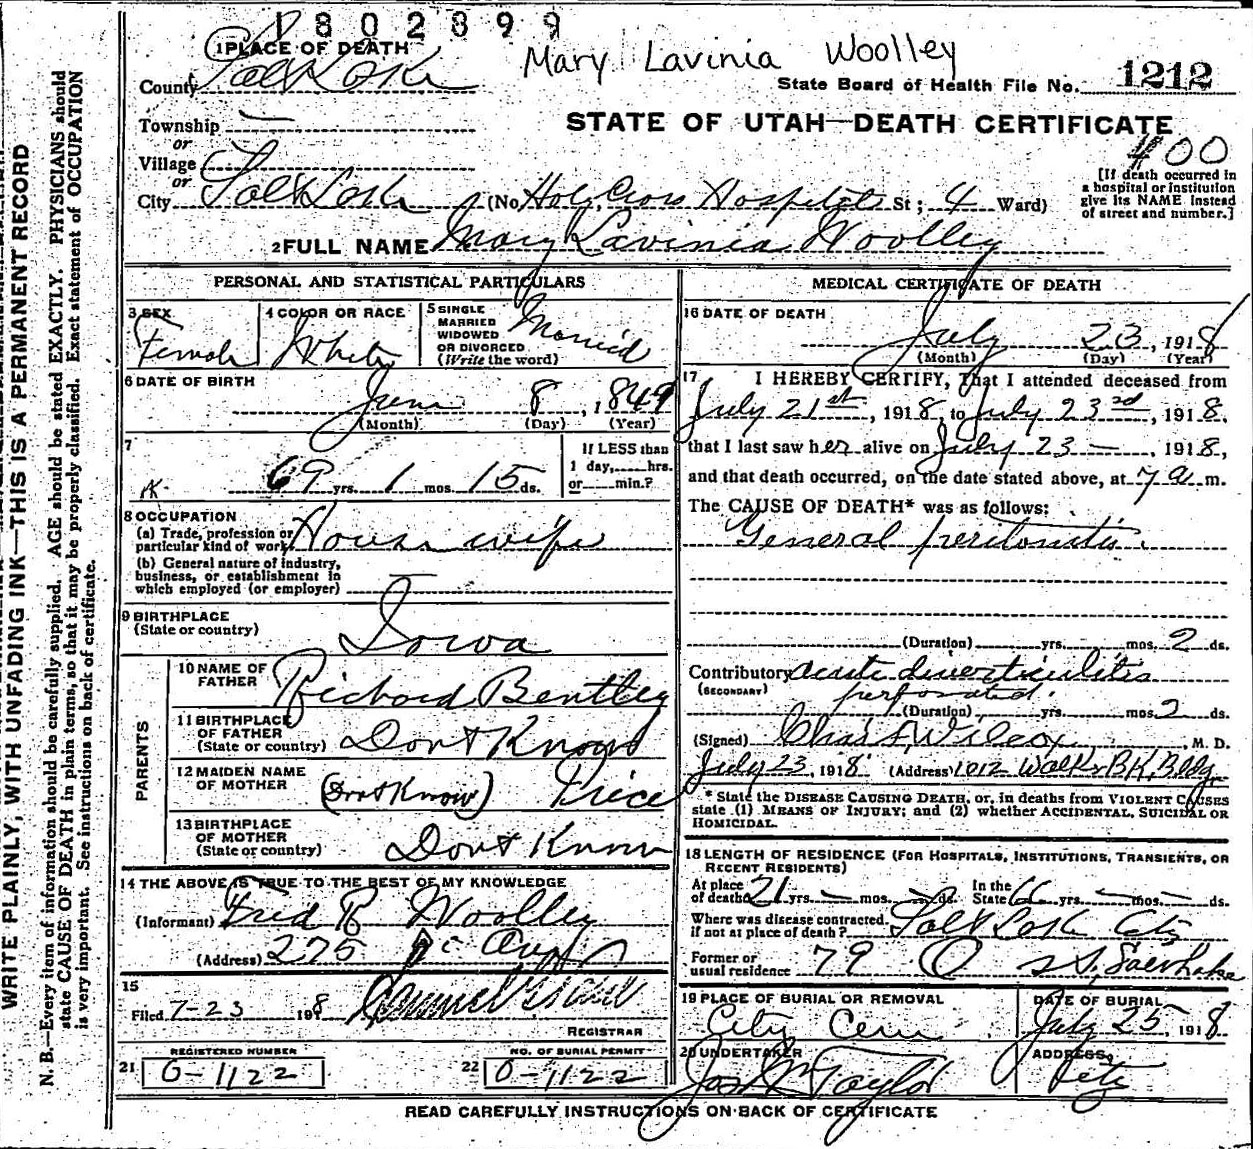 1802899
Mary Lavinia Woolley
1 PLACE OF DEATH
County Salt Lake
State Board of Health File No. 1212
Township
or
Village
or
City Salt Lake (No. Holy Cross Hospital St; 4 Ward)
STATE OF UTAH—DEATH CERTIFICATE
400
[If death occurred in
a hospital or institution
give its NAME instead
of street and number.]
2 FULL NAME Mary Lavinia Woolley
PERSONAL AND STATISTICAL PARTICULARS
3 SEX
Female
4 COLOR OR RACE
White
5 SINGLE
MARRIED
WIDOWED
OR DIVORCED
(Write the word)
Married
6 DATE OF BIRTH
June 8, 1849
(Month) (Day) (Year)
7
69 yrs. 1 mos. 15 ds.
If LESS than
1 day,......hrs.
or......min.?
8 OCCUPATION
(a) Trade, profession or
particular kind of work House wife
(b) General nature of industry,
business, or establishment in
which employed (or employer)
9 BIRTHPLACE
(State or country) Iowa
PARENTS
10 NAME OF
FATHER Richard Bentley
11 BIRTHPLACE
OF FATHER
(State or country) Dont Know
12 MAIDEN NAME
OF MOTHER (Dont Know) Price
13 BIRTHPLACE
OF MOTHER
(State or country) Dont Know
14 THE ABOVE IS TRUE TO THE BEST OF MY KNOWLEDGE
(Informant) Fred R Woolley
(Address) 275
15
Filed 7-23 1918
REGISTRAR
REGISTERED NUMBER
21 O-1122
NO. OF BURIAL PERMIT
22 O-1122
MEDICAL CERTIFICATE OF DEATH
16 DATE OF DEATH
July 23, 1918
(Month) (Day) (Year)
17 I HEREBY CERTIFY, That I attended deceased from
July 21st, 1918, to July 23rd, 1918.
that I last saw her alive on July 23—, 1918,
and that death occurred, on the date stated above, at 7 a m.
The CAUSE OF DEATH* was as follows:
General peritonitis.
(Duration) yrs. mos. 2 ds.
Contributory acute diverticulitis
(SECONDARY) perforated.
(Duration) yrs. mos. 2 ds.
(Signed) Chas F. Wilcox, M. D.
July 23, 1918 (Address) 1012 Walker BK. Bldg.
* State the DISEASE CAUSING DEATH, or, in deaths from VIOLENT CAUSES
state (1) MEANS OF INJURY; and (2) whether ACCIDENTAL, SUICIDAL OR
HOMICIDAL.
18 LENGTH OF RESIDENCE (FOR HOSPITALS, INSTITUTIONS, TRANSIENTS, OR
RECENT RESIDENTS)
At place
of death 21 yrs. — mos. — ds. In the
State 66 yrs. — mos. — ds.
Where was disease contracted,
if not at place of death? Salt Lake City
Former or
usual residence 79 O St, Salt Lake
19 PLACE OF BURIAL OR REMOVAL
City Cem
DATE OF BURIAL
July 25 1918
20 UNDERTAKER
Jos Wm Taylor
ADDRESS
City
READ CAREFULLY INSTRUCTIONS ON BACK OF CERTIFICATE
WRITE PLAINLY, WITH UNFADING INK—THIS IS A PERMANENT RECORD
N. B.—Every item of information should be carefully supplied. AGE should be stated EXACTLY. PHYSICIANS should
state CAUSE OF DEATH in plain terms, so that it may be properly classified. Exact statement of OCCUPATION
is very important. See instructions on back of certificate.